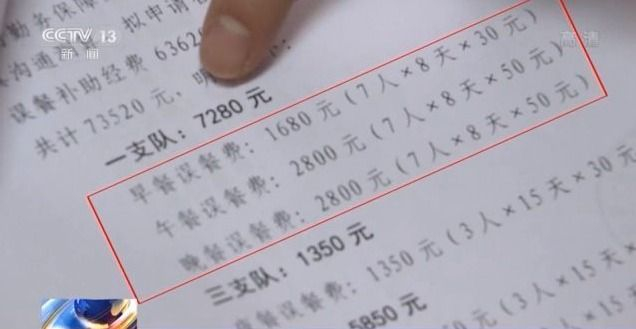 CCTV 13
新闻
高清
勤务保障
沟通 拟申请
误餐补助经费 6362
共计 73520 元，明
一支队：7280 元
早餐误餐费：1680 元（7人×8天×30元）
午餐误餐费：2800 元（7人×8天×50元）
晚餐误餐费：2800 元（7人×8天×50元）
三支队：1350 元
餐误餐费：1350 元（3人×15天×30元
5850 元
（3人×15天×